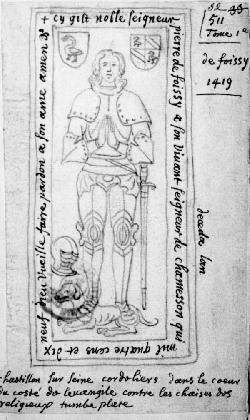 511
Tome 1er
de foissy
1419
+ cy gist noble seigneur
pierre de foissy a son vivant seigneur de chamesson qui
deceda lan
mil quatre cens et dix
neuf dieu vueille faire pardon a son ame amen
chastillon sur seine cordeliers dans le coeur
du costé de levangile contre les chaises des
religieux tumbe plate